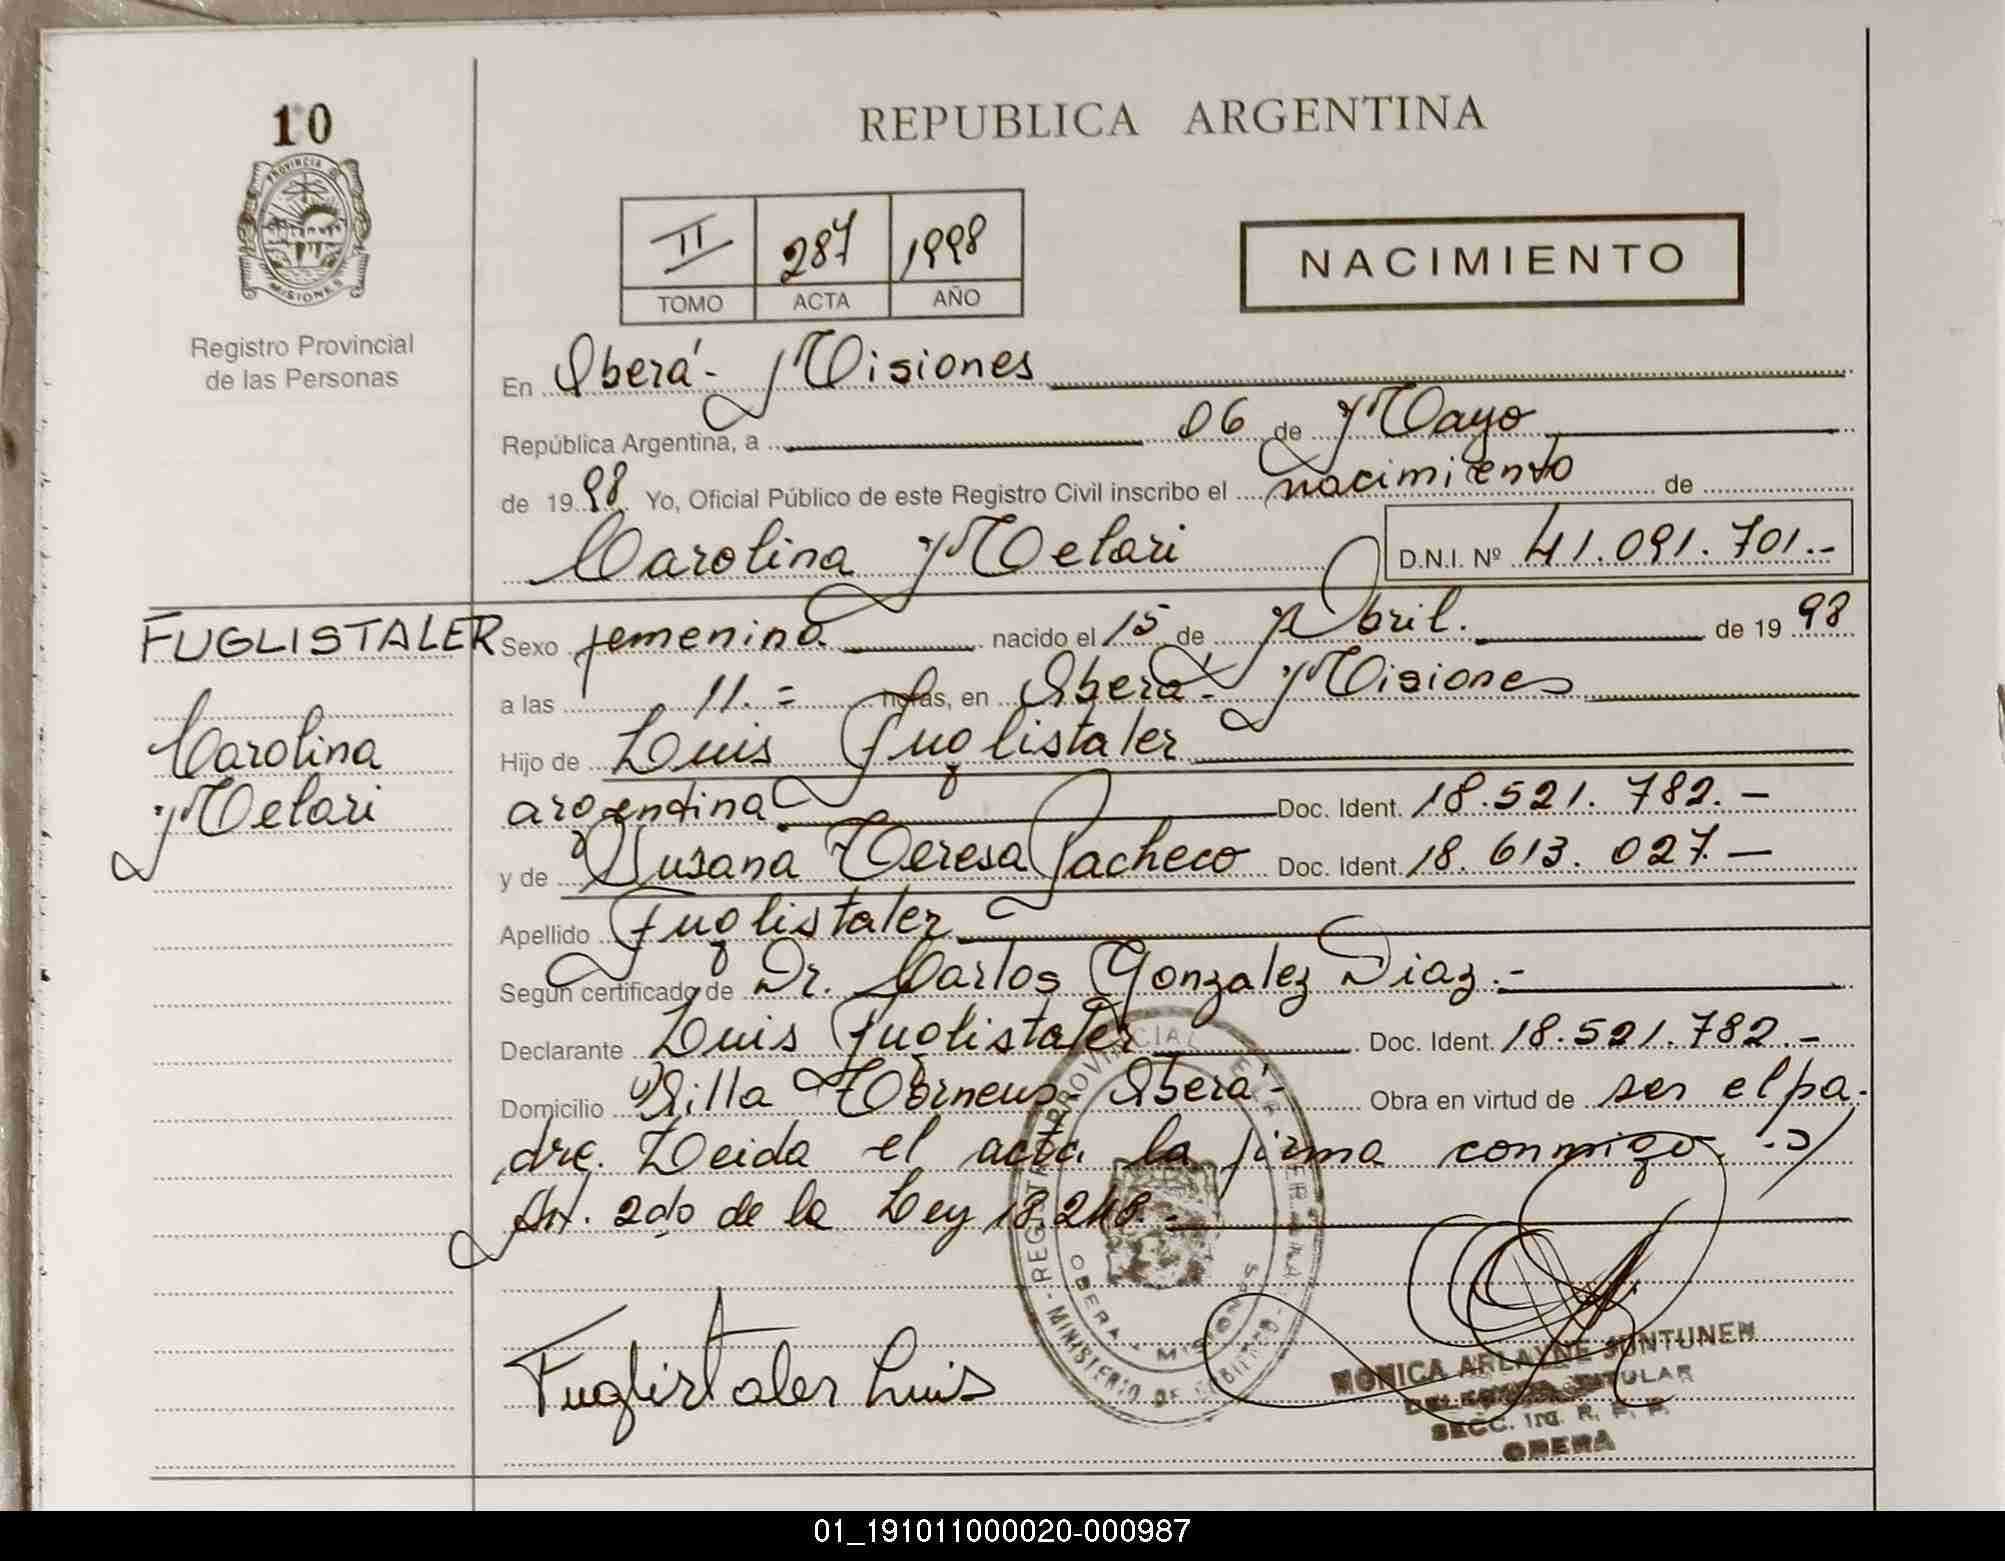 10
PROVINCIA
MISIONES
Registro Provincial
de las Personas
REPUBLICA ARGENTINA
II 287 1998
TOMO ACTA AÑO
NACIMIENTO
En Oberá - Misiones
República Argentina, a 06 de Mayo
de 1998 Yo, Oficial Público de este Registro Civil inscribo el nacimiento de
Carolina Melari D.N.I. Nº 41.091.701.-
FUGLISTALER
Carolina
Melari
Sexo femenina nacido el 15 de Abril. de 1998
a las 11.= horas, en Oberá - Misiones
Hijo de Luis Fuglistaler
argentina Doc. Ident. 18.521.782.-
y de Susana Teresa Pacheco Doc. Ident. 18.613.027.-
Apellido Fuglistaler
Según certificado de Dr. Carlos Gonzalez Diaz.-
Declarante Luis Fuglistaler Doc. Ident. 18.521.782.-
Domicilio Villa Torneus - Oberá - Obra en virtud de ser el pa-
dre. Leida el acta la firma conmigo.
Art. 2do de la Ley 18.248.-
Fuglistaler Luis
MINISTERIO DE GOBIERNO
OBERA - MISIONES
MONICA ARLAYNE JONTUNEN
TITULAR
SECC. R. P. P.
OBERA
01_191011000020-000987